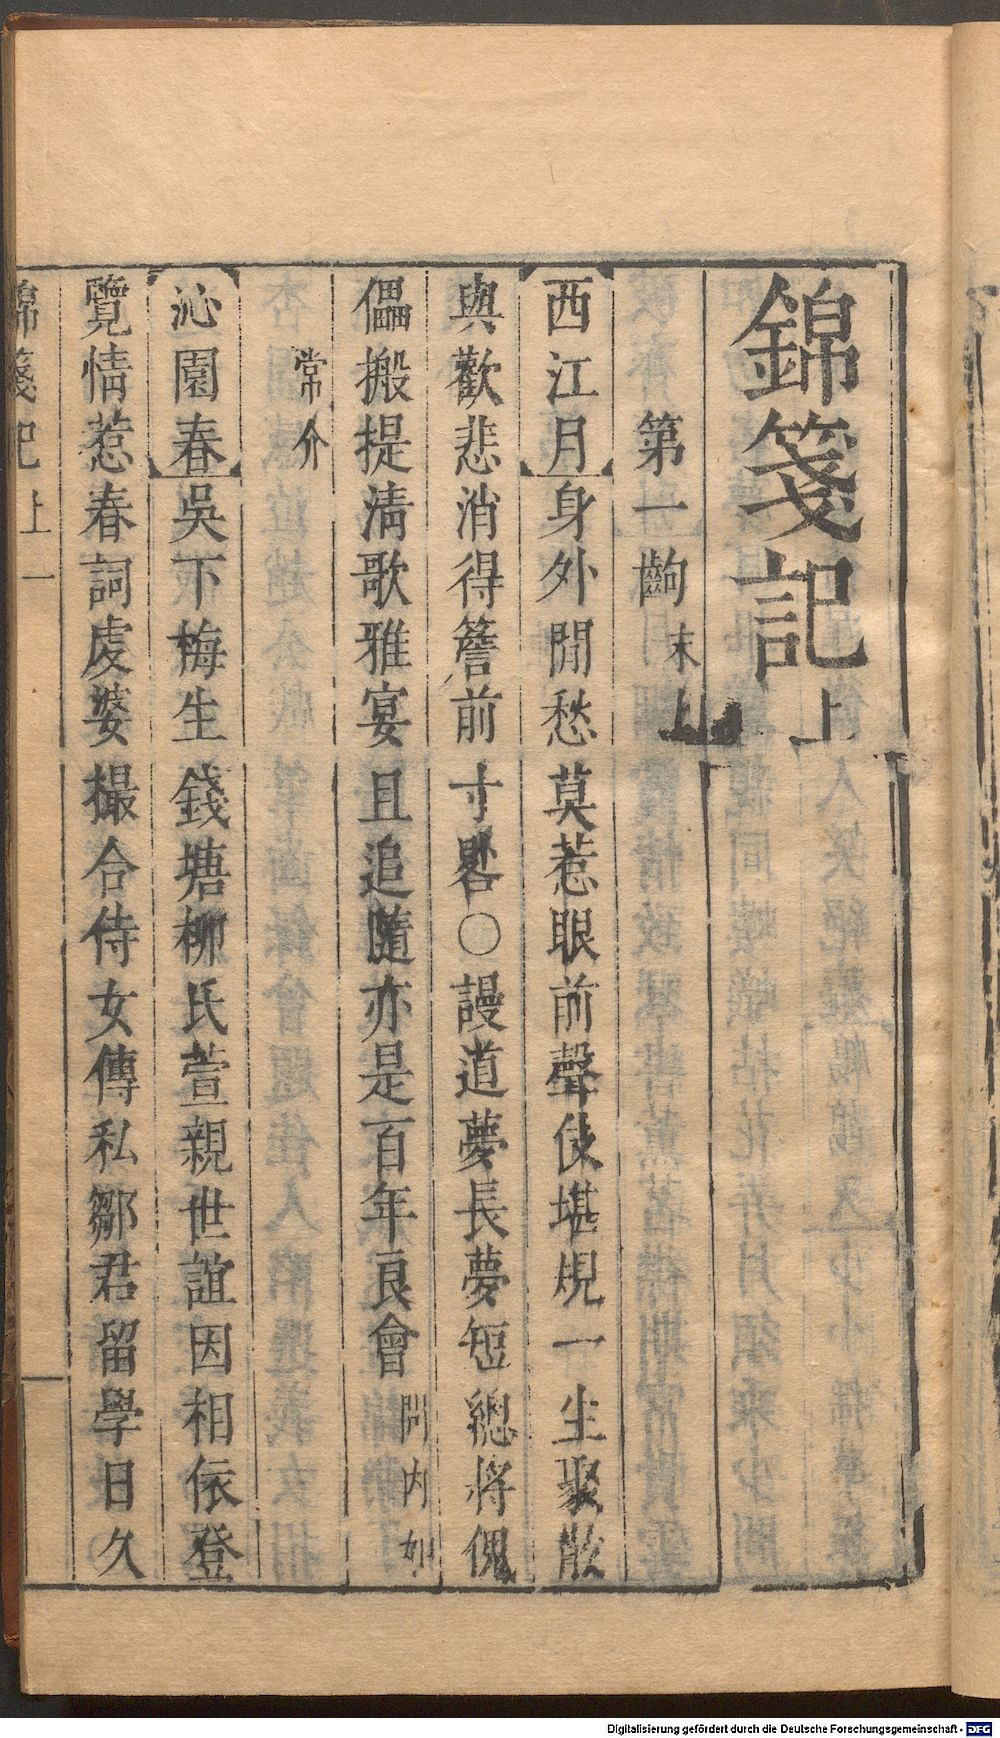 錦箋記上
第一齣 末上
西江月 身外閒愁莫惹眼前聲伎堪規一生聚散
與歡悲消得簷前寸晷○謾道夢長夢短總將傀
儡搬提淸歌雅宴且追隨亦是百年良會 問內如
常介
沁園春 吳下梅生錢塘柳氏萱親世誼因相依登
覽情惹春詞處婆撮合侍女傳私鄒君留學日久
錦箋記 上 一
Digitalisierung gefördert durch die Deutsche Forschungsgemeinschaft - DFG